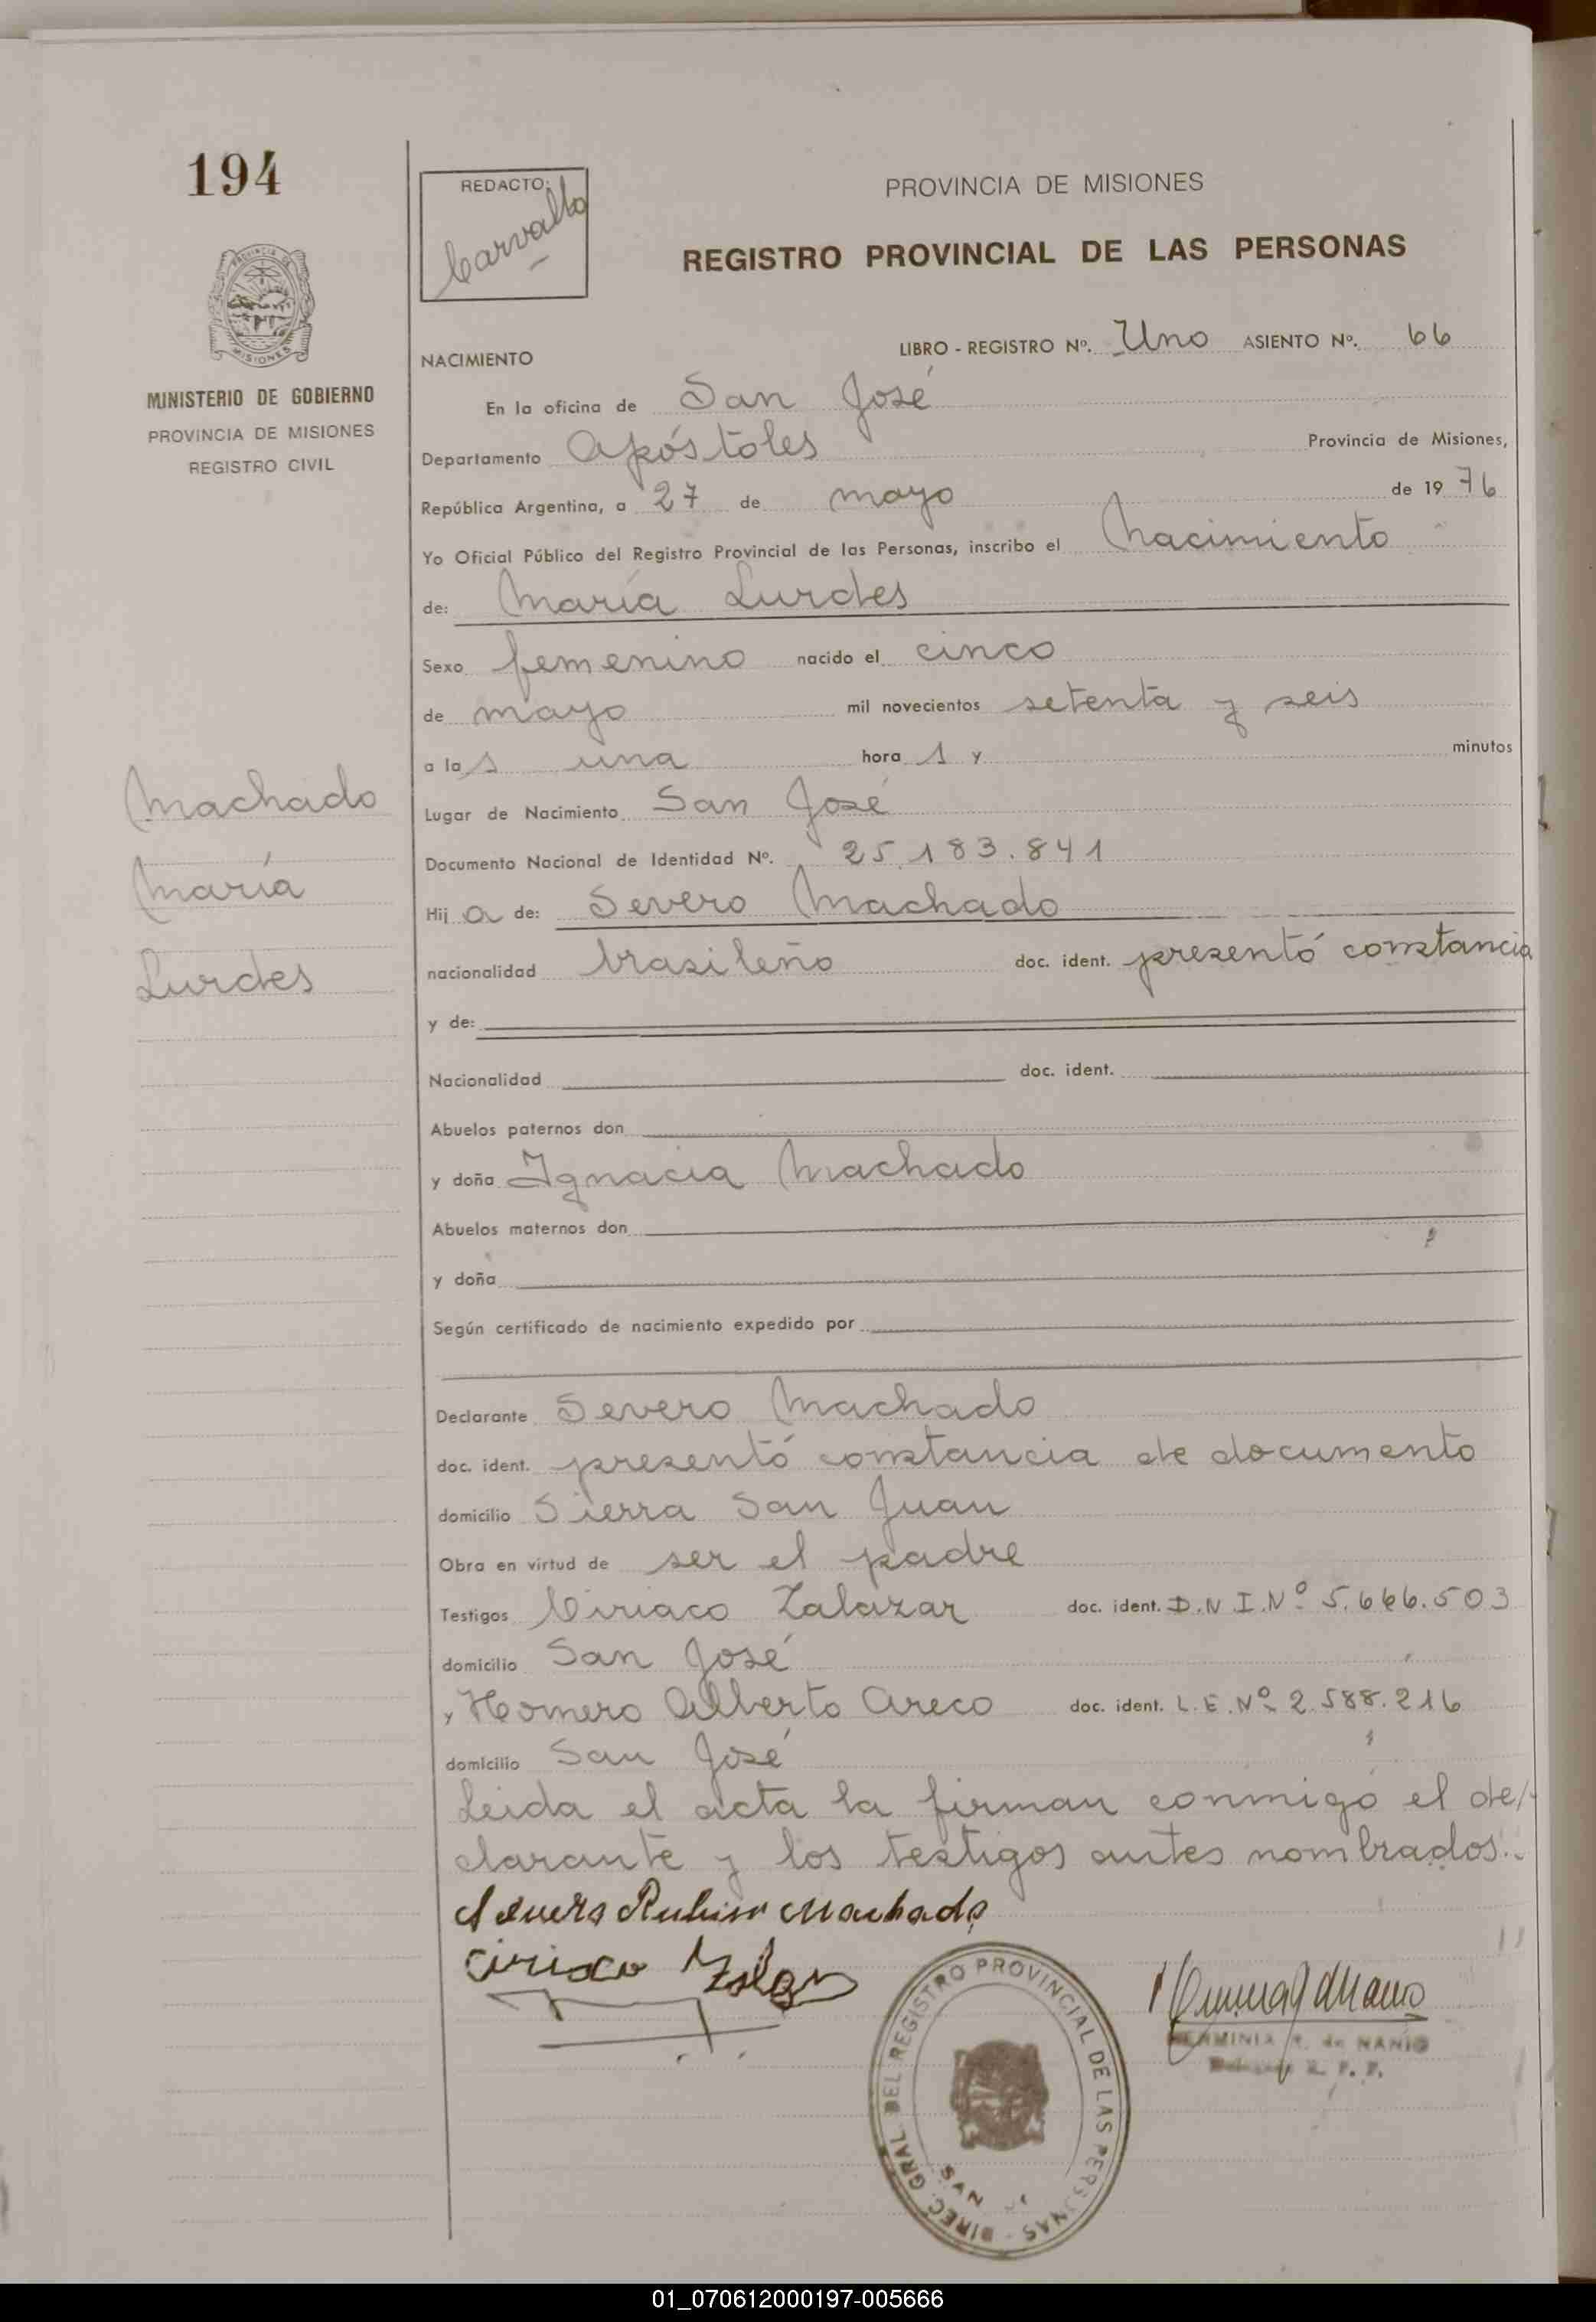 194
REDACTO:
Carvallo
PROVINCIA DE MISIONES
REGISTRO PROVINCIAL DE LAS PERSONAS
MISIONES
MINISTERIO DE GOBIERNO
PROVINCIA DE MISIONES
REGISTRO CIVIL
NACIMIENTO
LIBRO - REGISTRO Nº. Uno ASIENTO Nº. 66
En la oficina de San José
Departamento Apóstoles Provincia de Misiones,
República Argentina, a 27 de mayo de 19 76
Yo Oficial Público del Registro Provincial de las Personas, inscribo el Nacimiento
de: María Lurdes
Sexo femenino nacido el cinco
de mayo mil novecientos setenta y seis
a la s una hora 1 y minutos
Machado
María
Lurdes
Lugar de Nacimiento San José
Documento Nacional de Identidad Nº. 25.183.841
Hij a de: Severo Machado
nacionalidad brasileño doc. ident. presentó constancia
y de:
Nacionalidad doc. ident.
Abuelos paternos don
y doña Ignacia Machado
Abuelos maternos don
y doña
Según certificado de nacimiento expedido por
Declarante Severo Machado
doc. ident. presentó constancia de documento
domicilio Sierra San Juan
Obra en virtud de ser el padre
Testigos Ciriaco Zalazar doc. ident. D.N.I.Nº 5.666.503
domicilio San José
y Homero Alberto Areco doc. ident. L.E.Nº 2.588.216
domicilio San José
Leida el acta la firman conmigo el de/
clarante y los testigos antes nombrados..
Machado
Ciriaco
DIREC. GRAL DEL REGISTRO PROVINCIAL DE LAS PERSONAS -
SAN
HERMINIA de NANIO
R. P. P.
01_070612000197-005666